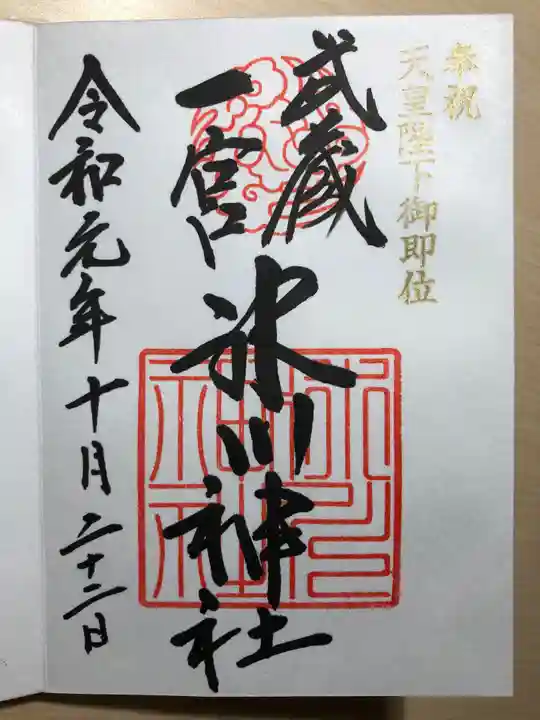 奉祝
天皇陛下御即位
武蔵
一宮
氷川神社
令和元年十月二十二日
氷川
神社